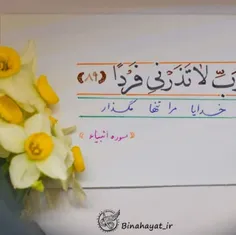 رَبِّ لَا تَذَرْنِي فَرْدًا ﴿۸۹﴾
خدایا مرا تنها مگذار
سوره انبیاء
Binahayat_ir